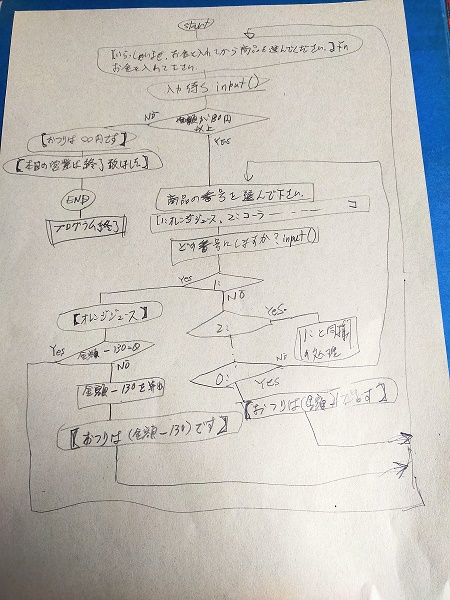 start
【いらっしゃいませ、お金を入れてから商品を選んでください。】¥n
お金を入れて下さい。
入力待ち input()
NO
金額が130円
以上
YES
【おつりは ○○円です】
【本日の営業は終了致しました】
END
プログラム終了
商品の番号を選んで下さい。
1:オレンジジュース, 2:コーラ
どの番号にしますか? input()
1:
YES
NO
【オレンジジュース】
2:
YES
1:と同様
の処理
Yes
金額-130=0
NO
0:
NO
Yes
金額-130を算出
【おつりは(金額-130)です】
【おつりは(金額)です】